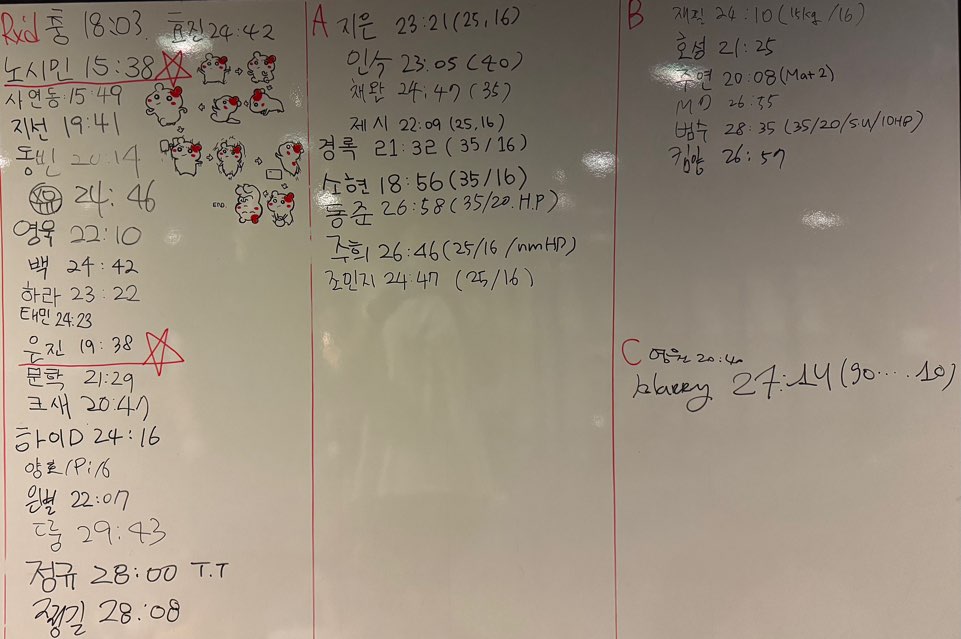 Rxd 풍 18:03. 효진 24:42
노시민 15:38
사연동 15:49
지선 19:41
동빈 20:14
유 24:46
영욱 22:10
백 24:42
하라 23:22
태민 24:23
은진 19:38
문학 21:29
크새 20:47
하이D 24:16
은별 22:07
29:43
정규 28:00 T.T
찡길 28:08
END.
A 지은 23:21 (25, 16)
인수 23:05 (40)
채완 24:47 (35)
제시 22:09 (25, 16)
경록 21:32 (35/16)
소현 18:56 (35/16)
동준 26:58 (35/20. H.P)
주희 26:46 (25/16/nmHD)
조민지 24:47 (25/16)
B 재진 24:10 (15kg/16)
호성 21:25
주연 20:08 (Mat2)
MD 26:55
범수 28:35 (35/20/SU/10HP)
킴양 26:57
C 영원 20:40
27:14 (90....10)